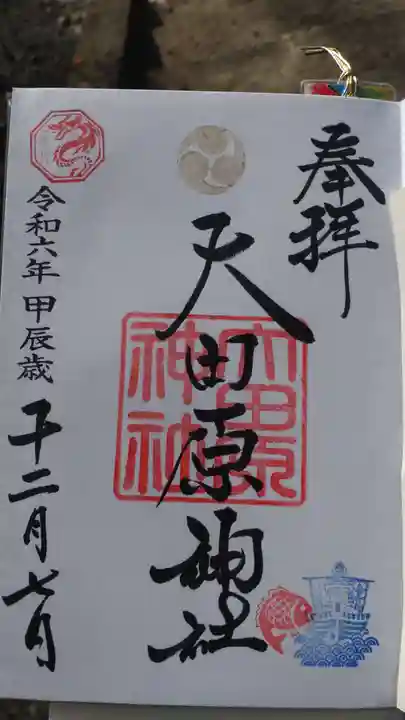 奉拝
大田原神社
大田原
神社
令和六年甲辰歳十二月七日